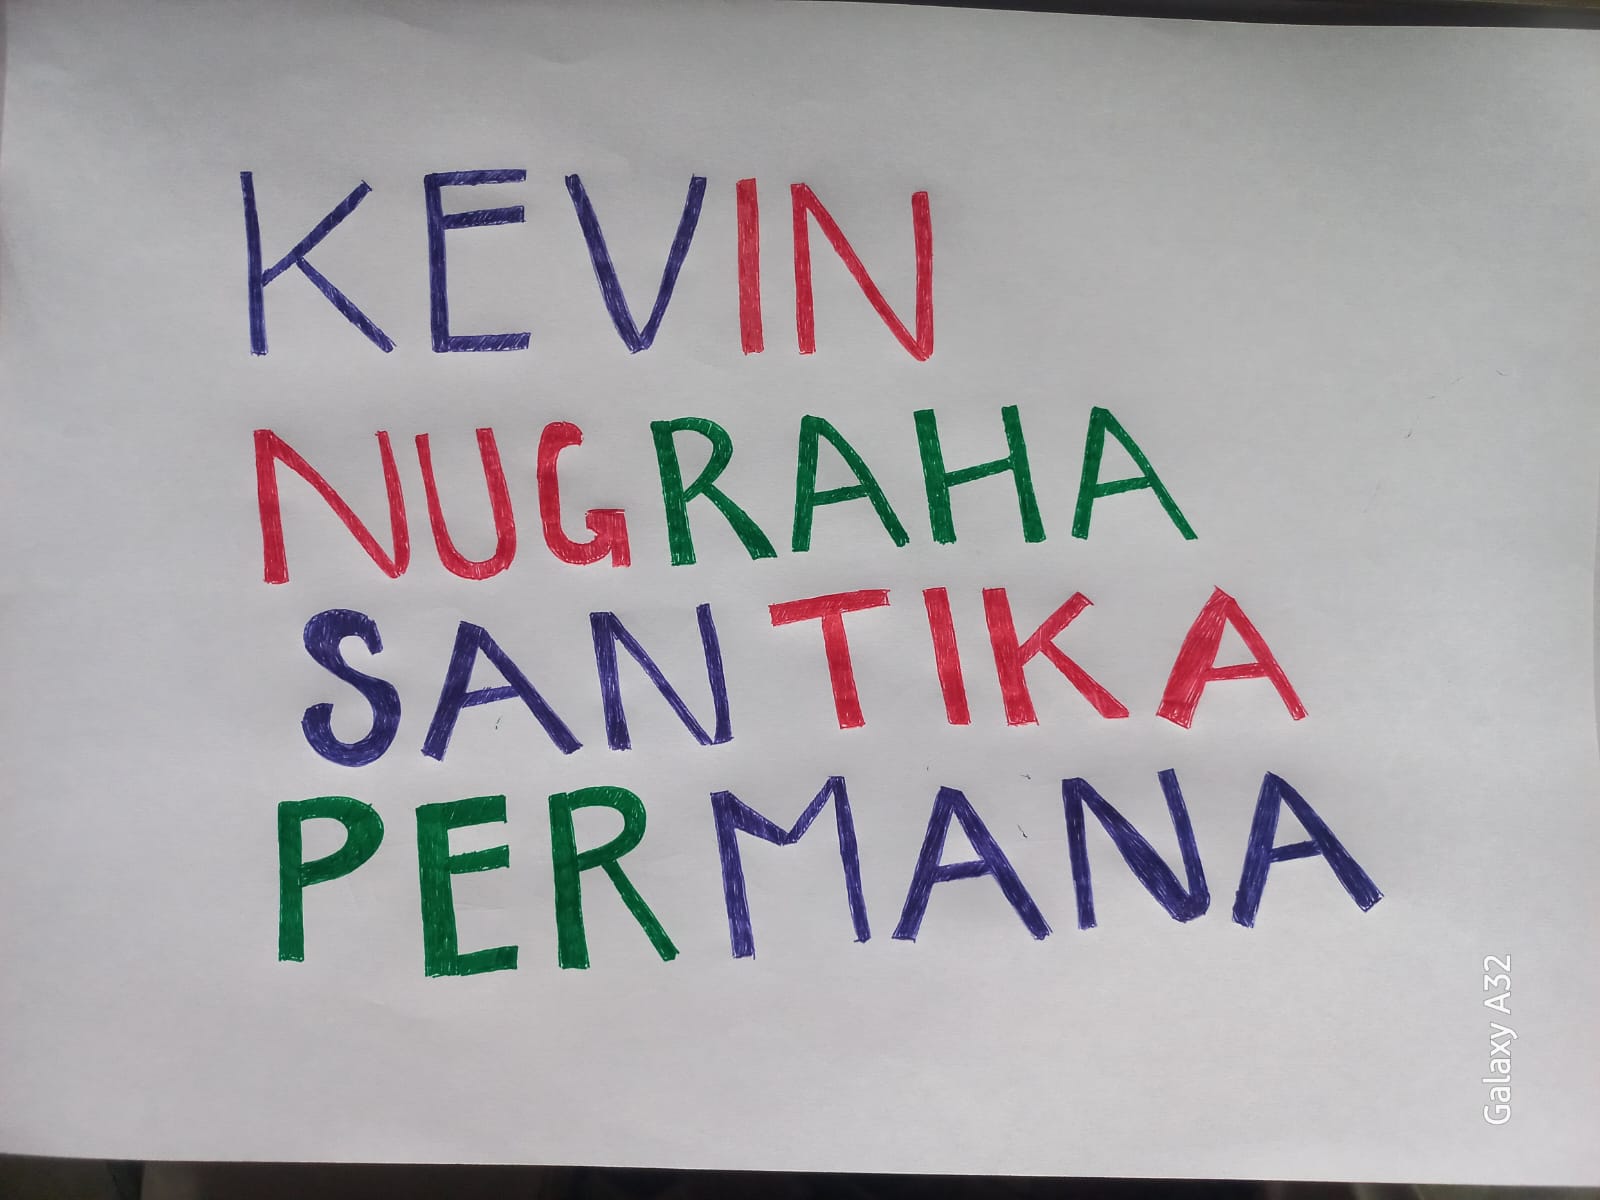 KEVIN
NUGRAHA
SANTIKA
PERMANA
Galaxy A32